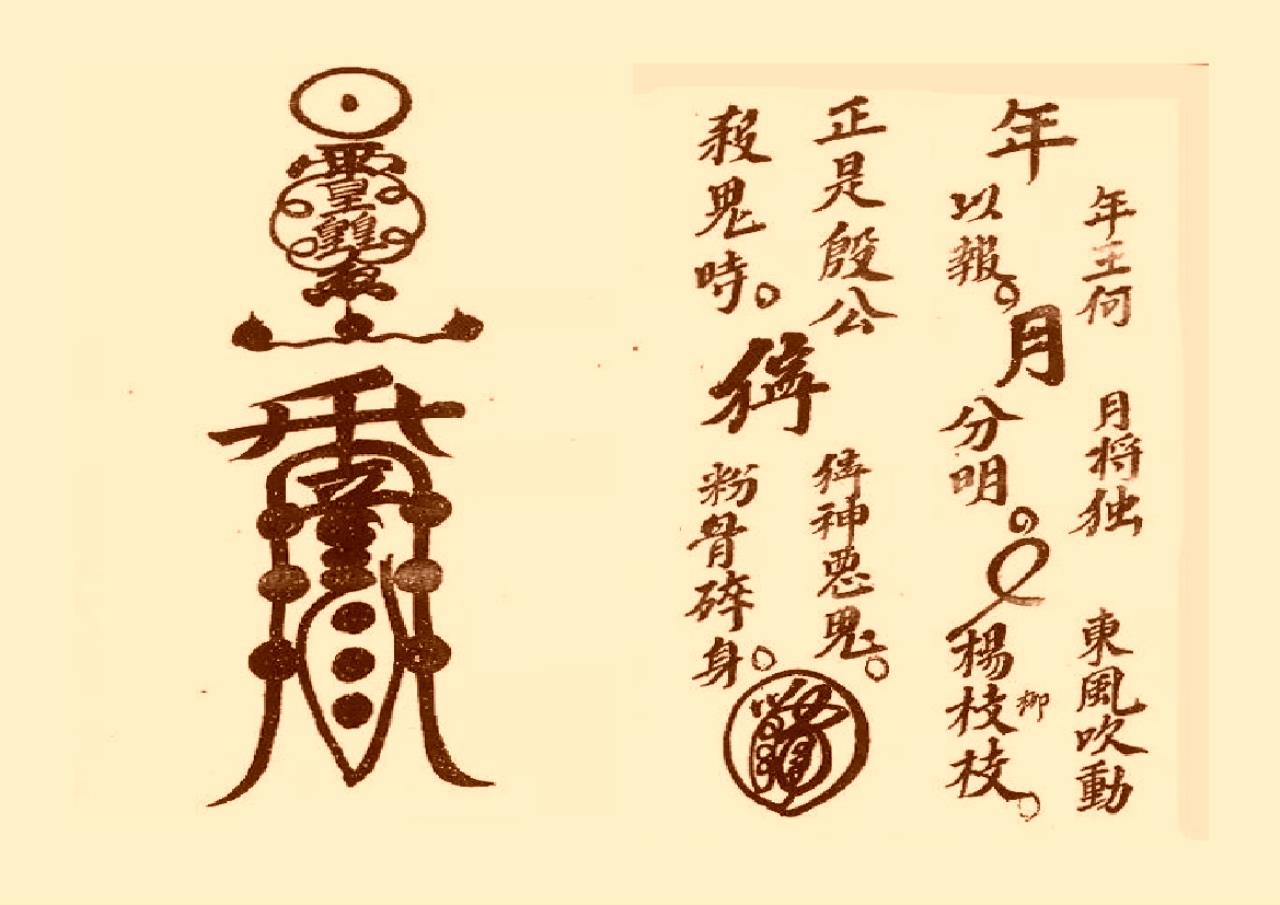 年
年王何
以報。
月
月将独
分明。
東風吹動
楊枝枝。
柳
正是殷公
殺鬼時。
神悪鬼。
粉骨碎身。